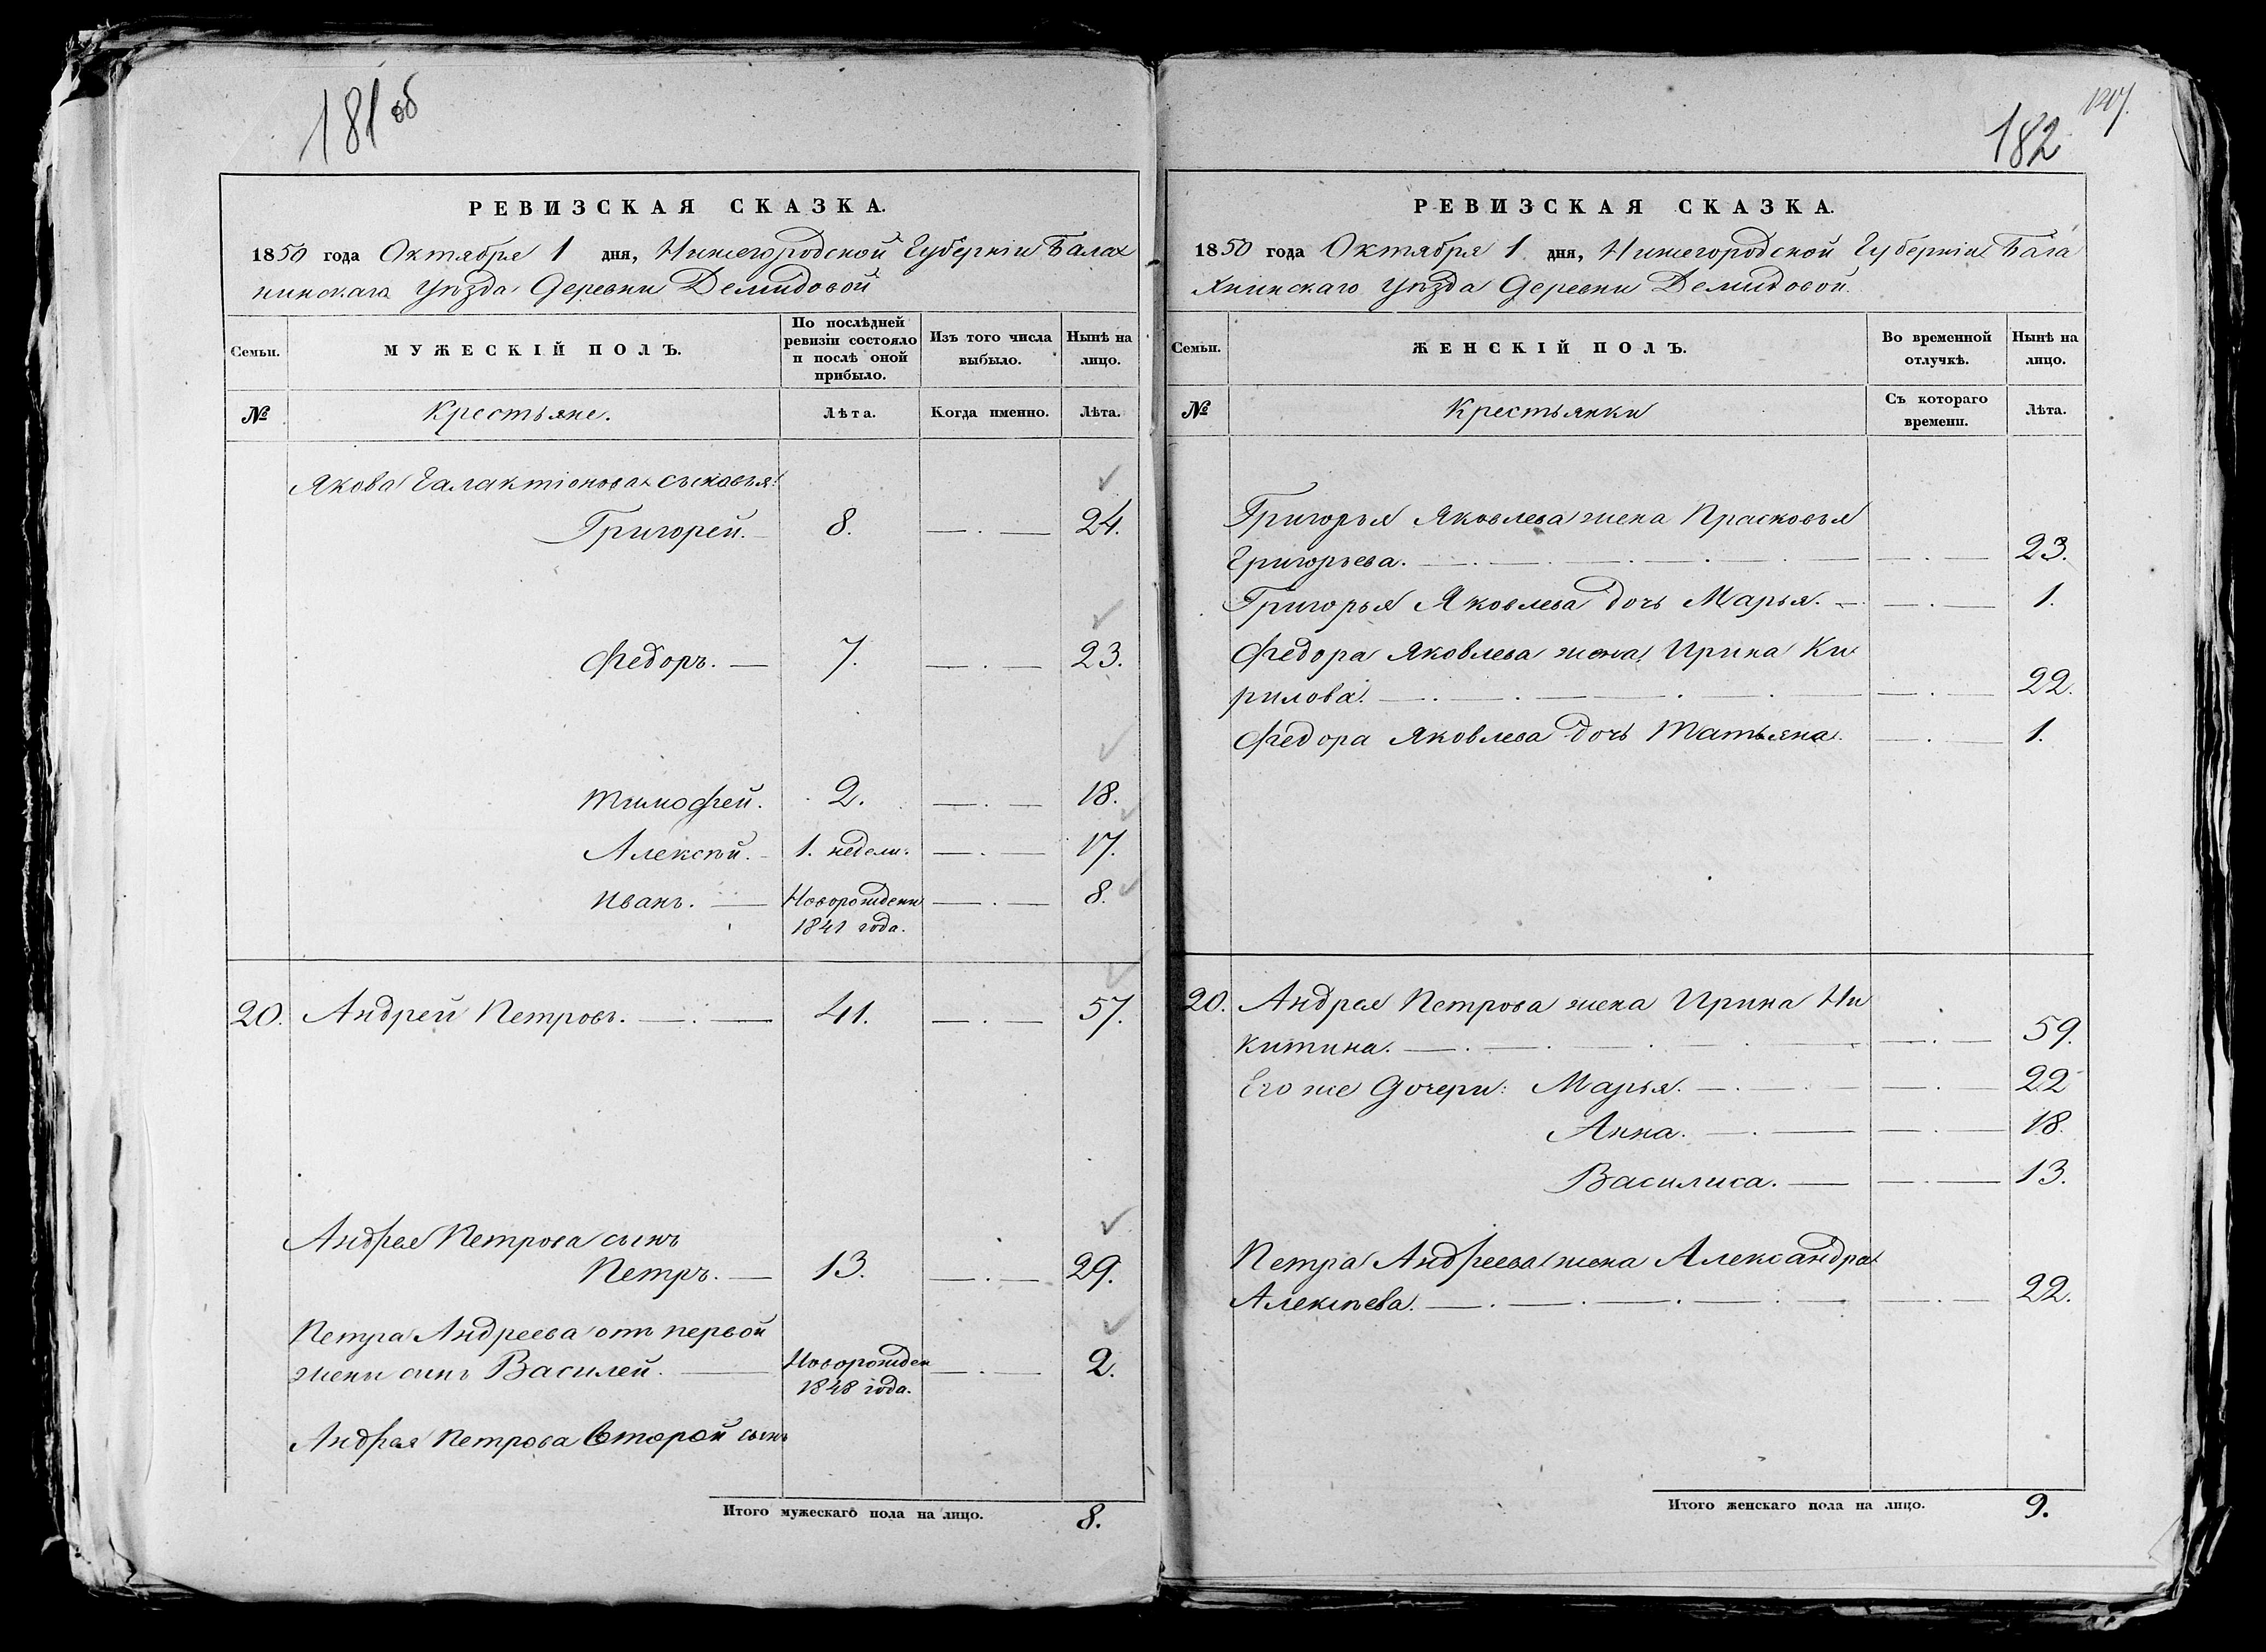 181 об
РЕВИЗСКАЯ СКАЗКА.
1850 года Октября 1 дня, Нижегородской Губерніи Балах
нинскаго Уѣзда Деревни Демидовой
Семьи.
МУЖЕСКІЙ ПОЛЪ.
По послѣдней ревизіи состояло и послѣ оной прибыло.
Изъ того числа выбыло.
Нынѣ на лицо.
№
Крестьяне.
Лѣта.
Когда именно.
Лѣта.
Якова Галактіонова сыновья:
Григорей. 8. 24.
Федоръ. 7. 23.
Тимофей. 2. 18.
Алексѣй. 1. недели. 17.
Иванъ. Новорожденн 8.
1841 года.
20. Андрей Петровъ. 41. 57.
Андрея Петрова сынъ
Петръ. 13. 29.
Петра Андреева отъ первой
жены сынъ Василей. Новорожден 2.
1848 года.
Андрея Петрова второй сынъ
Итого мужескаго пола на лицо. 8.
182
РЕВИЗСКАЯ СКАЗКА.
1850 года Октября 1 дня, Нижегородской Губерніи Бала
хнинскаго Уѣзда Деревни Демидовой.
Семьи.
ЖЕНСКІЙ ПОЛЪ.
Во временной отлучкѣ.
Нынѣ на лицо.
№
Крестьянки
Съ котораго времени.
Лѣта.
Григорья Яковлева жена Прасковья
Григорьева. 23.
Григорья Яковлева дочь Марья. 1.
Федора Яковлева жена Ирина Ки
рилова. 22.
Федора Яковлева дочь Татьяна. 1.
20. Андрея Петрова жена Ирина Ни
китина. 59.
Его же дочери: Марья. 22
Анна. 18.
Василиса. 13.
Петра Андреева жена Александра
Алексѣева. 22.
Итого женскаго пола на лицо. 9.